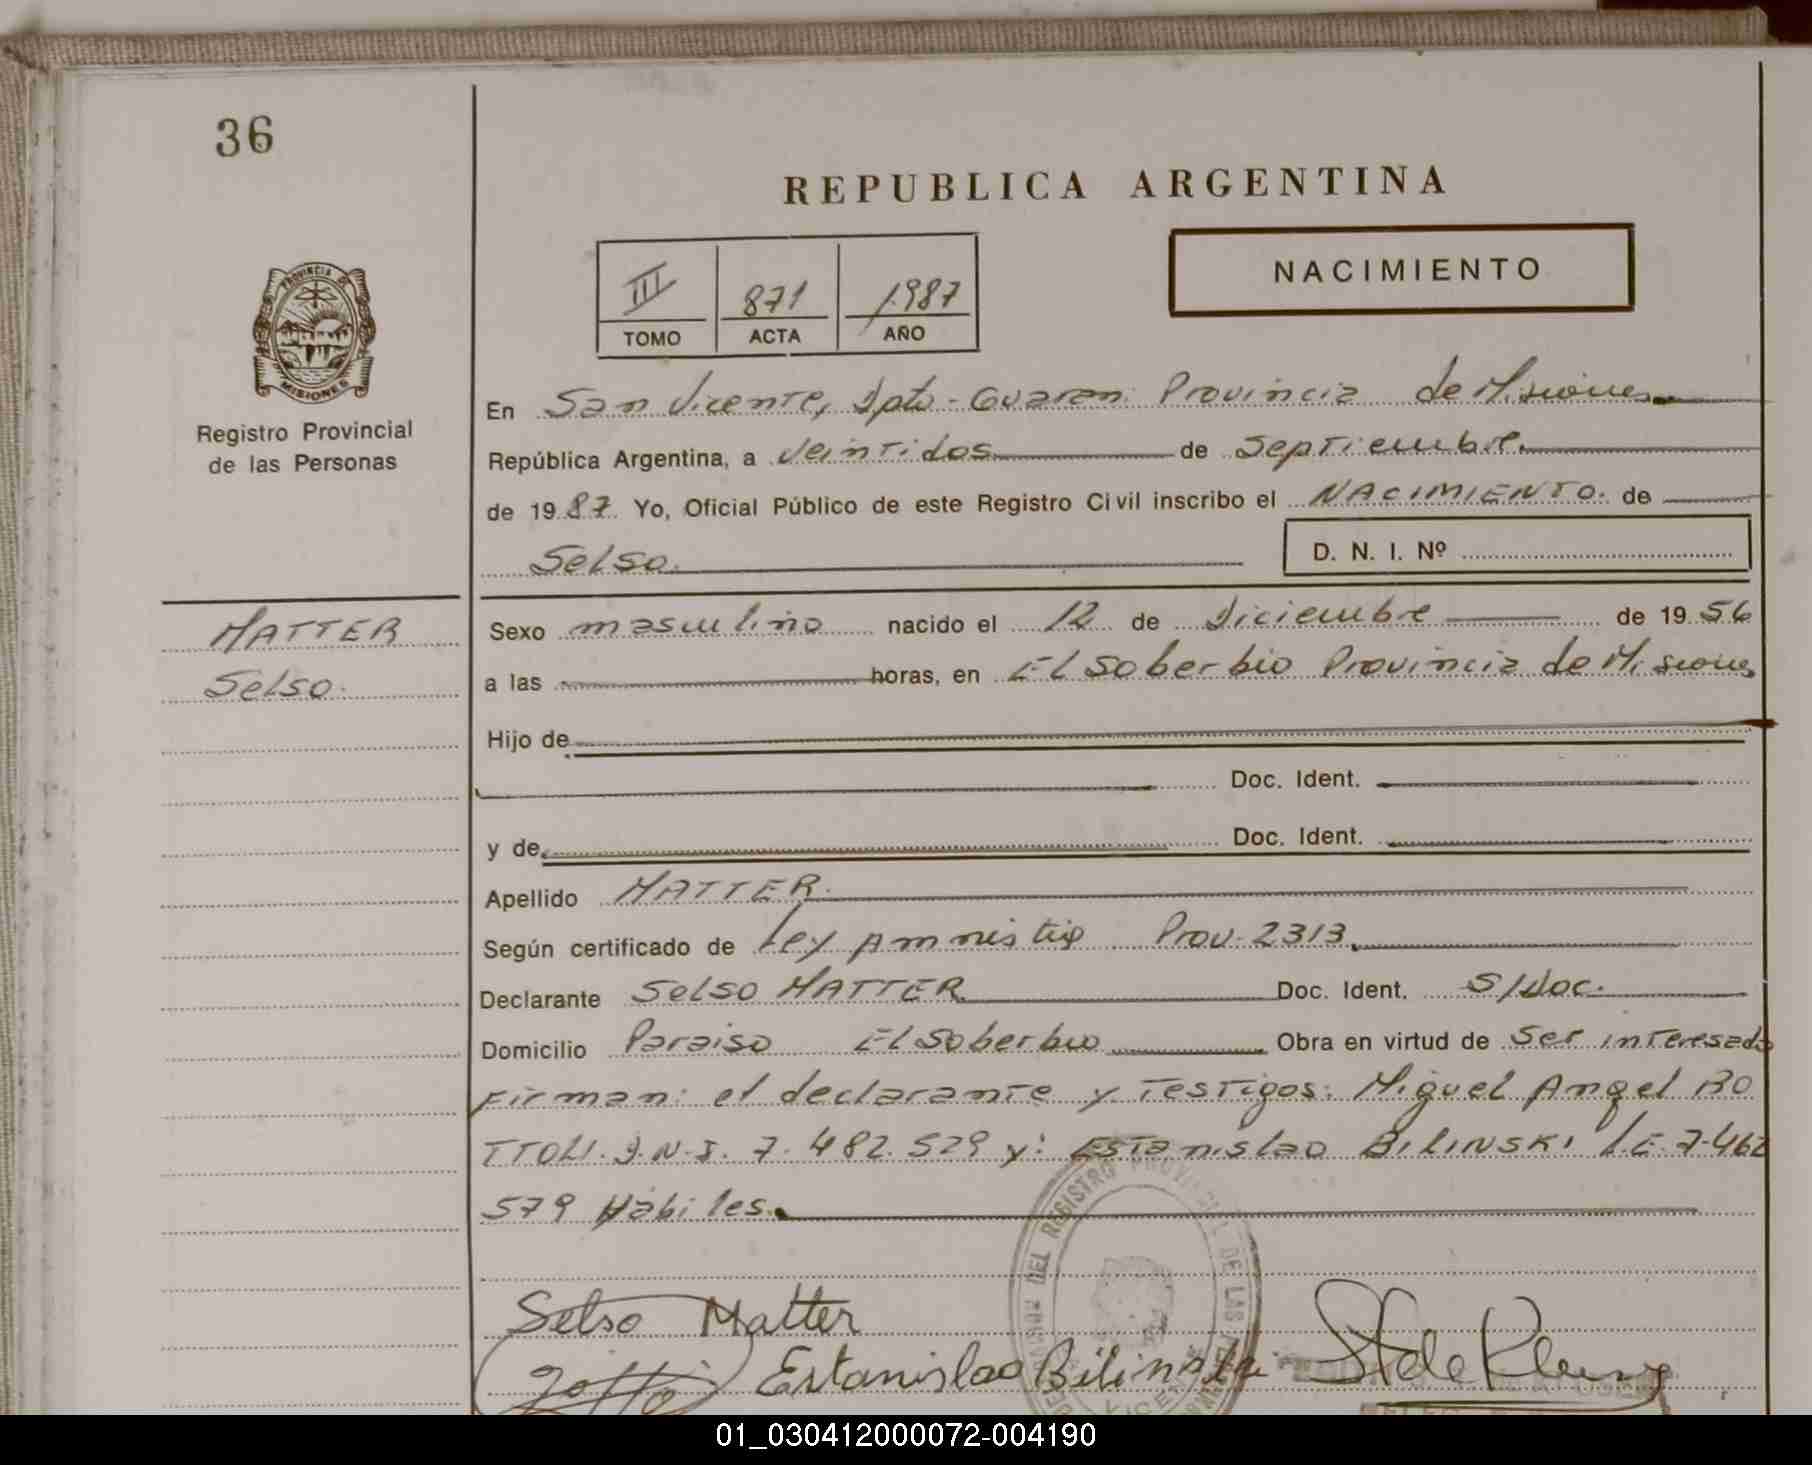 36
REPUBLICA ARGENTINA
NACIMIENTO
III 871 1987
TOMO ACTA AÑO
PROVINCIA DE
MISIONES
Registro Provincial
de las Personas
En San Vicente, Dpto-Guarani Provincia de Misiones
República Argentina, a Veintidos de Septiembre
de 1987 Yo, Oficial Público de este Registro Civil inscribo el NACIMIENTO. de
Selso. D. N. I. Nº
MATTER
Selso.
Sexo masculino nacido el 12 de Diciembre de 1956
a las horas, en El Soberbio Provincia de Misiones
Hijo de
Doc. Ident.
y de Doc. Ident.
Apellido MATTER.
Según certificado de Ley Amnistia Prov. 2313.
Declarante Selso MATTER Doc. Ident. S/Doc.
Domicilio Paraiso El Soberbio Obra en virtud de Ser interesado
Firman: el declarante y Testigos: Miguel Angel BO
TTOLI. D.N.I. 7.482.529 y: Estanislao BILINSKI L.E. 7.462
579 Hábiles.
DEL REGISTRO PROVINCIAL DE LAS
Selso Matter
Estanislao Bilinski
01_030412000072-004190